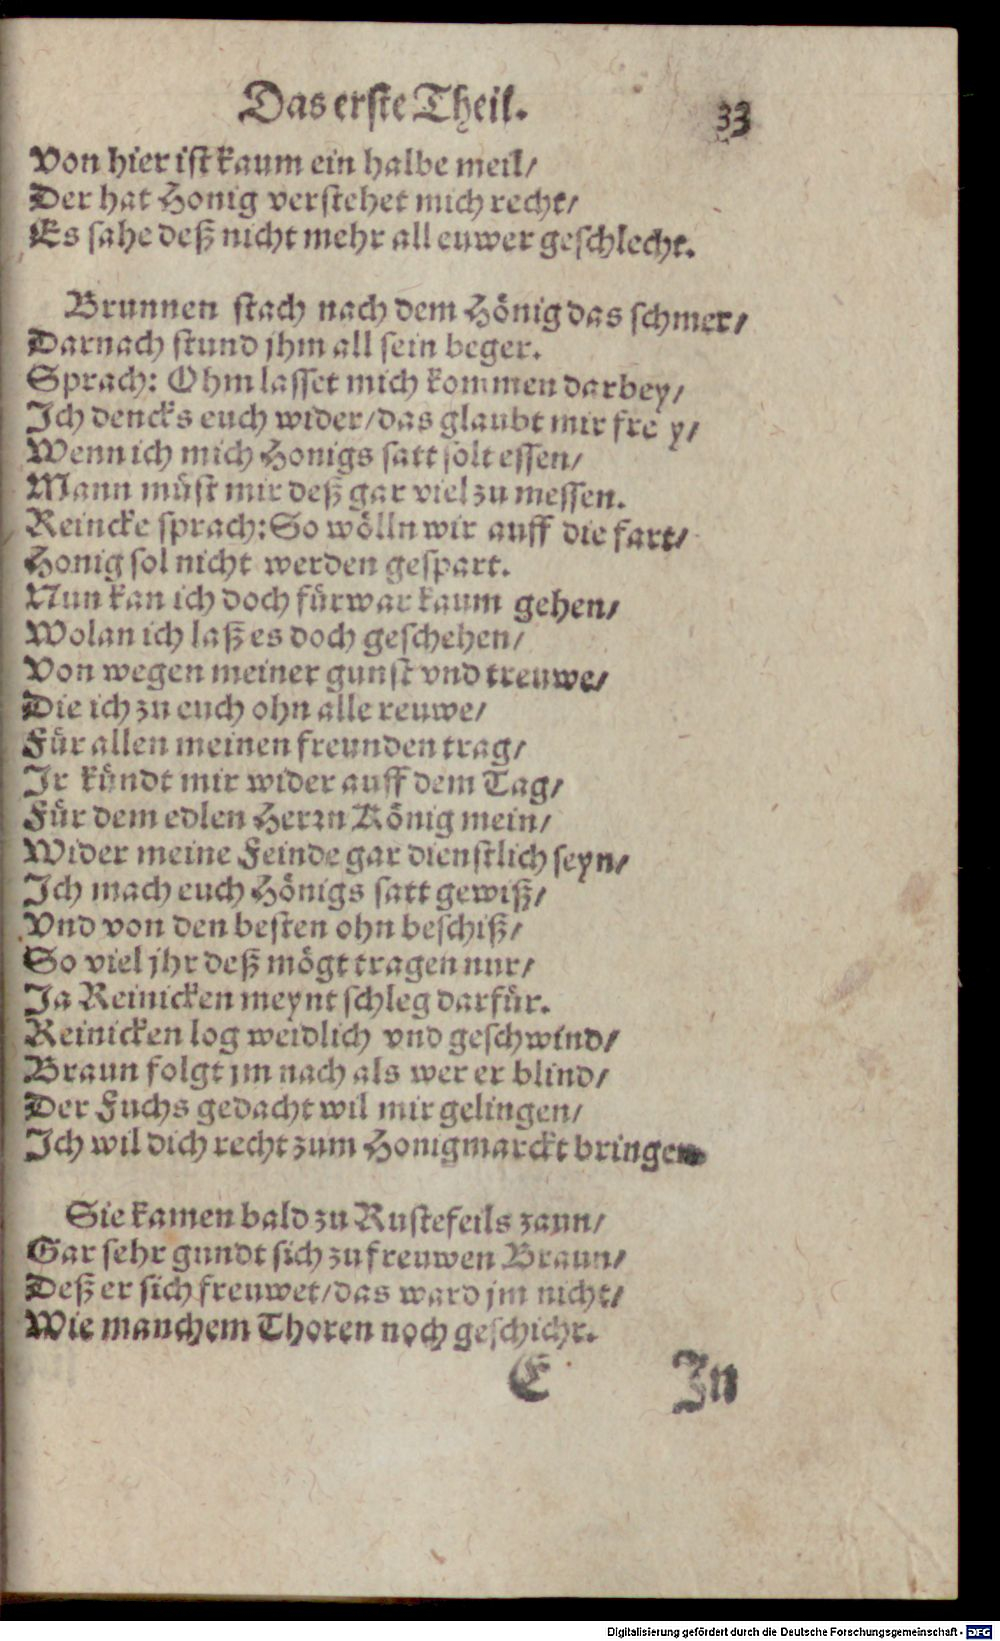 Das erste Theil. 33
Von hier ist kaum ein halbe meil/
Der hat Honig verstehet mich recht/
Es sahe deß nicht mehr all euwer geschlecht.
Brunnen stach nach dem Hönig das schmer/
Darnach stund jhm all sein beger.
Sprach: Ohm lasset mich kommen darbey/
Ich dencks euch wider/das glaubt mir frey/
Wenn ich mich Honigs satt solt essen/
Mann müst mir deß gar viel zu messen.
Reincke sprach: So wölln wir auff die fart/
Honig sol nicht werden gespart.
Nun kan ich doch fürwar kaum gehen/
Wolan ich laß es doch geschehen/
Von wegen meiner gunst vnd treuwe/
Die ich zu euch ohn alle reuwe/
Für allen meinen freunden trag/
Ir kündt mir wider auff dem Tag/
Für dem edlen Herrn König mein/
Wider meine Feinde gar dienstlich seyn/
Ich mach euch Hönigs satt gewiß/
Vnd von den besten ohn beschiß/
So viel jhr deß mögt tragen nur/
Ja Reinicken meynt schleg darfür.
Reinicken log weidlich vnd geschwind/
Braun folgt jm nach als wer er blind/
Der Fuchs gedacht wil mir gelingen/
Ich wil dich recht zum Honigmarckt bringen
Sie kamen bald zu Rustefeils zaun/
Gar sehr gundt sich zu freuwen Braun/
Deß er sich freuwet/das ward jm nicht/
Wie manchem Thoren noch geschicht.
E In
Digitalisierung gefördert durch die Deutsche Forschungsgemeinschaft - DFG